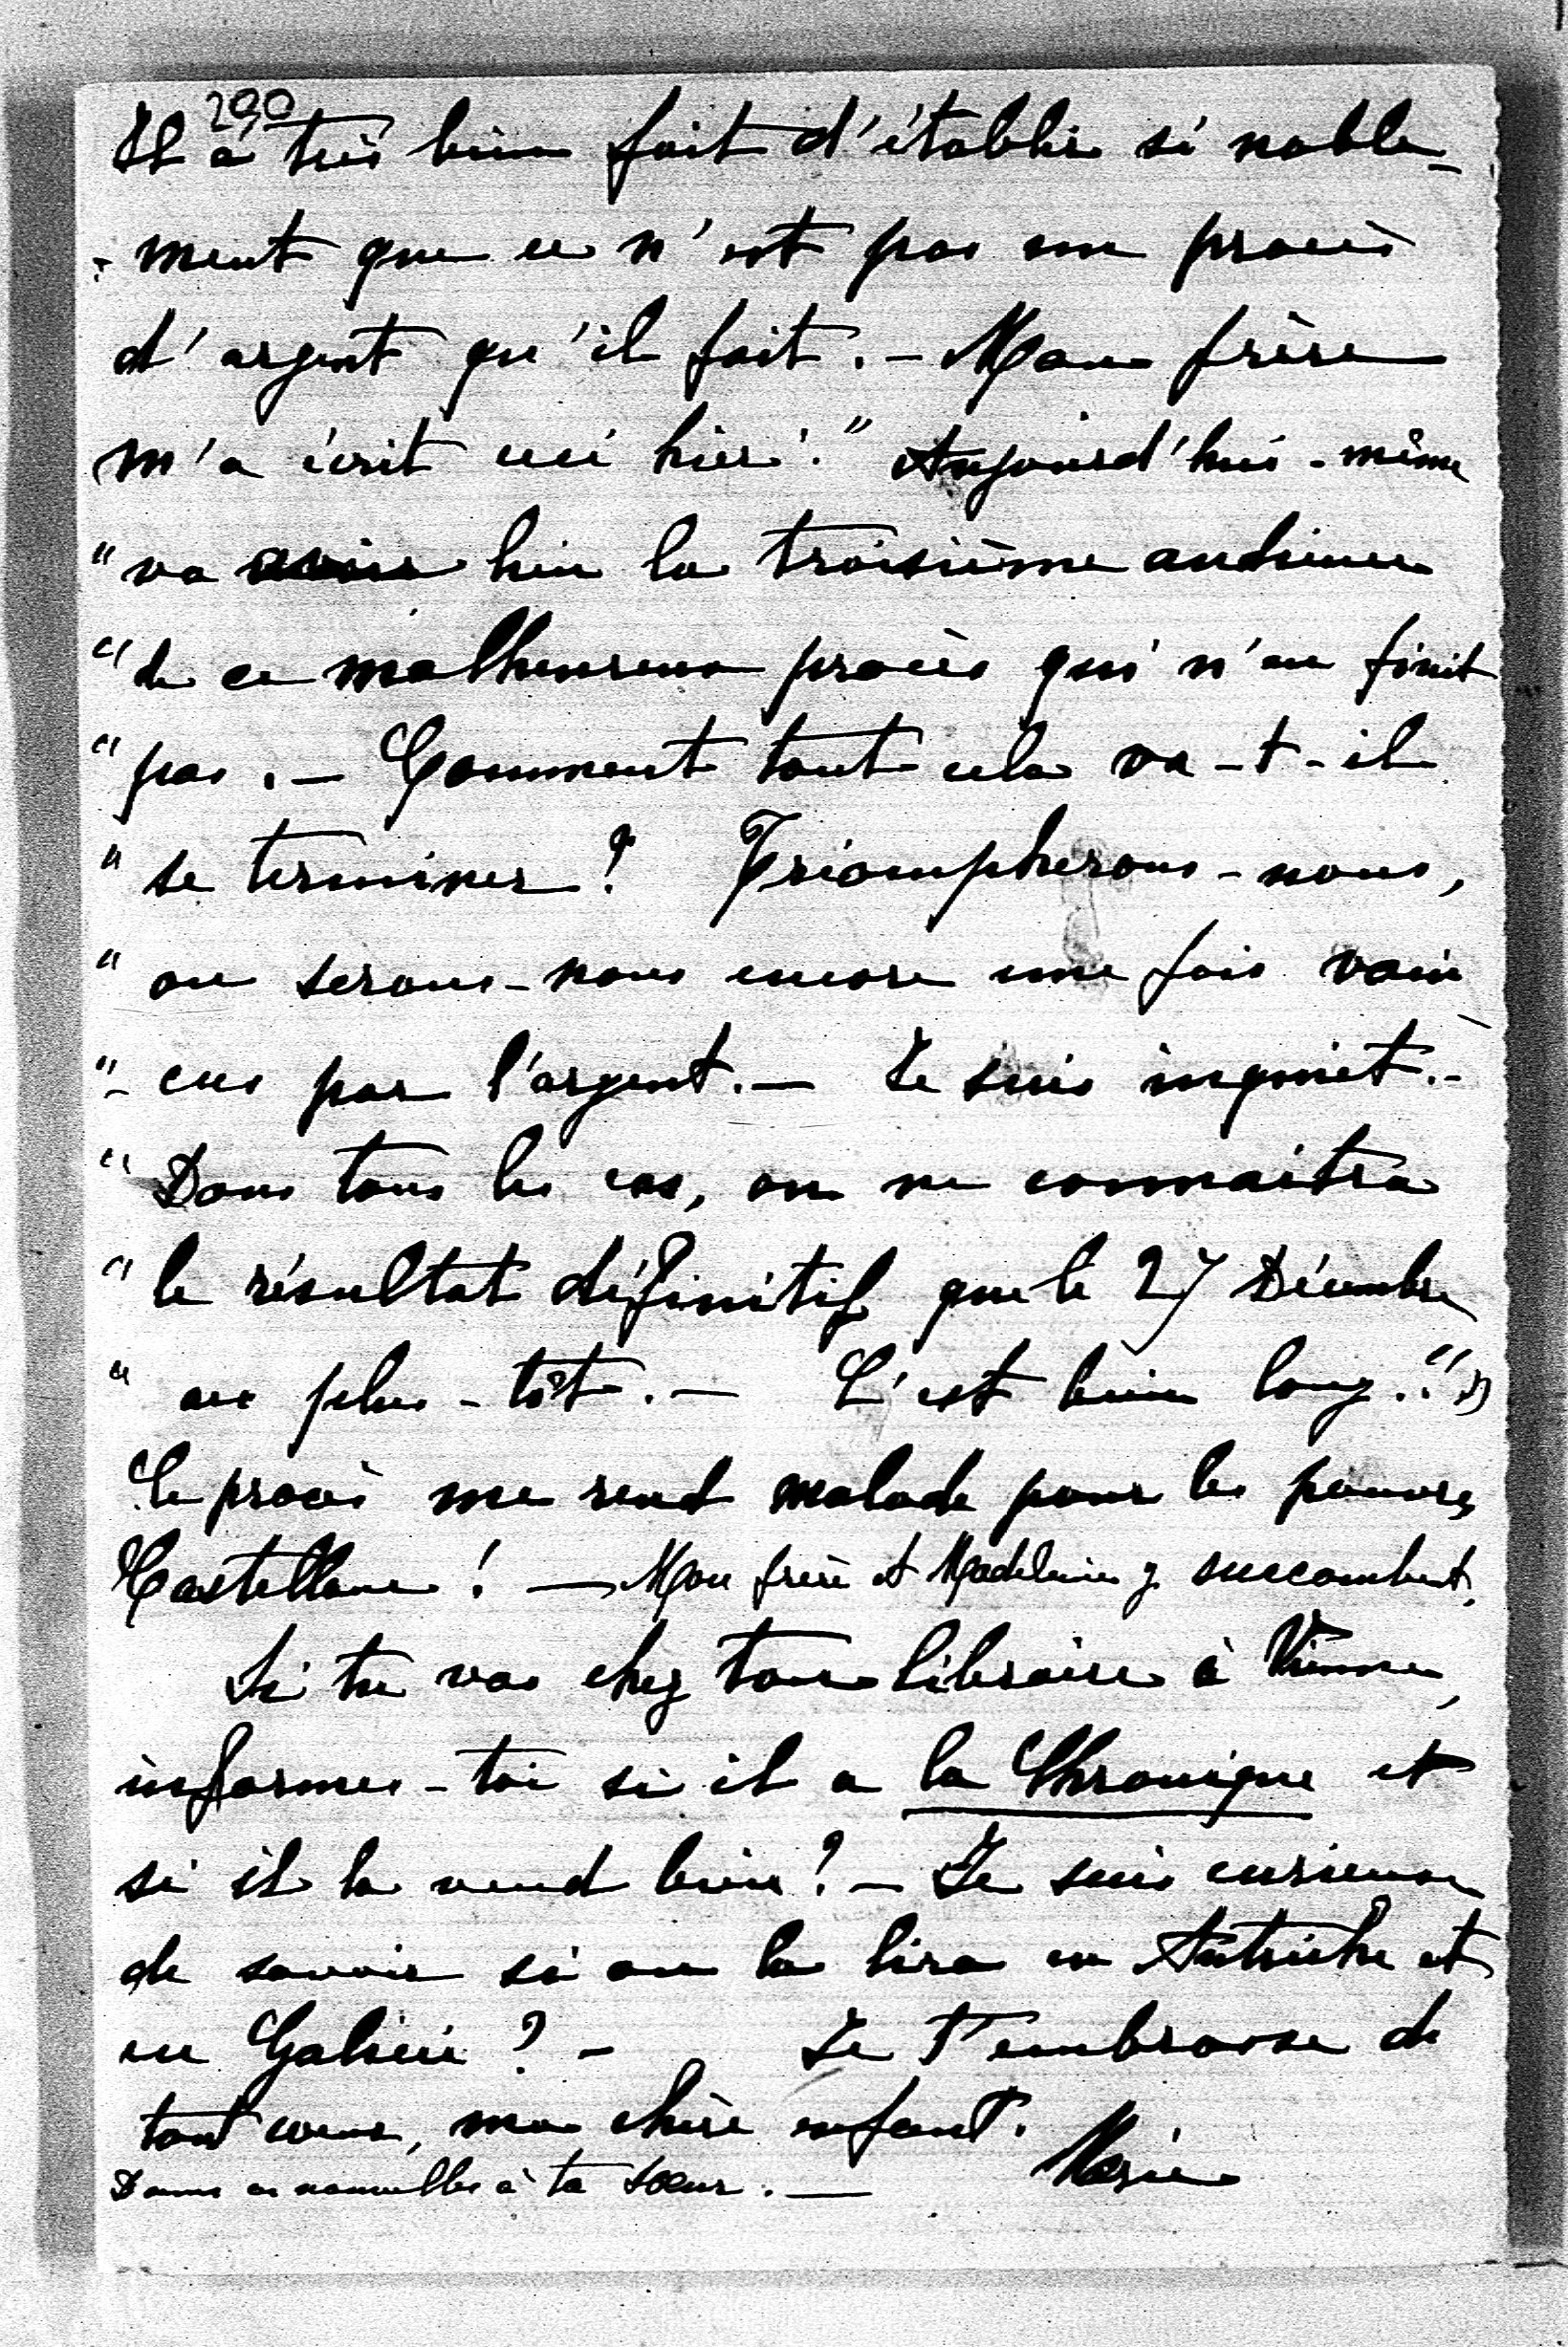 290
Il a très bien fait d'établir si noble-
-ment que ce n'est pas un procès
d'argent qu'il fait. - Mon frère
m'a écrit ceci hier: " Aujourd'hui-même
" va avoir lieu la troisième audience
" de ce malheureux procès qui n'en finit
" pas. - Comment tout cela va-t-il
" se terminer? Triompherons-nous,
" ou serons-nous encore une fois vain
"- cus par l'argent. - Je suis inquiet. -
" Dans tous les cas, on ne connaitra
" le résultat définitif que le 27 Décembre
" au plus-tôt. - C'est bien long." »
Ce procès me rend malade pour les pauvres
Castellane! - Mon frère et Madeleine y succombent.
Si tu vas chez ton libraire à Vienne,
informes-toi si il a la Chronique et
si il la vend bien? - Je suis curieuse
de savoir si on la lira en Autriche et
en Galicie? - Je t'embrasse de
tout cœur, ma chère enfant.
Marie
Donne en nouvelles à ta sœur. -